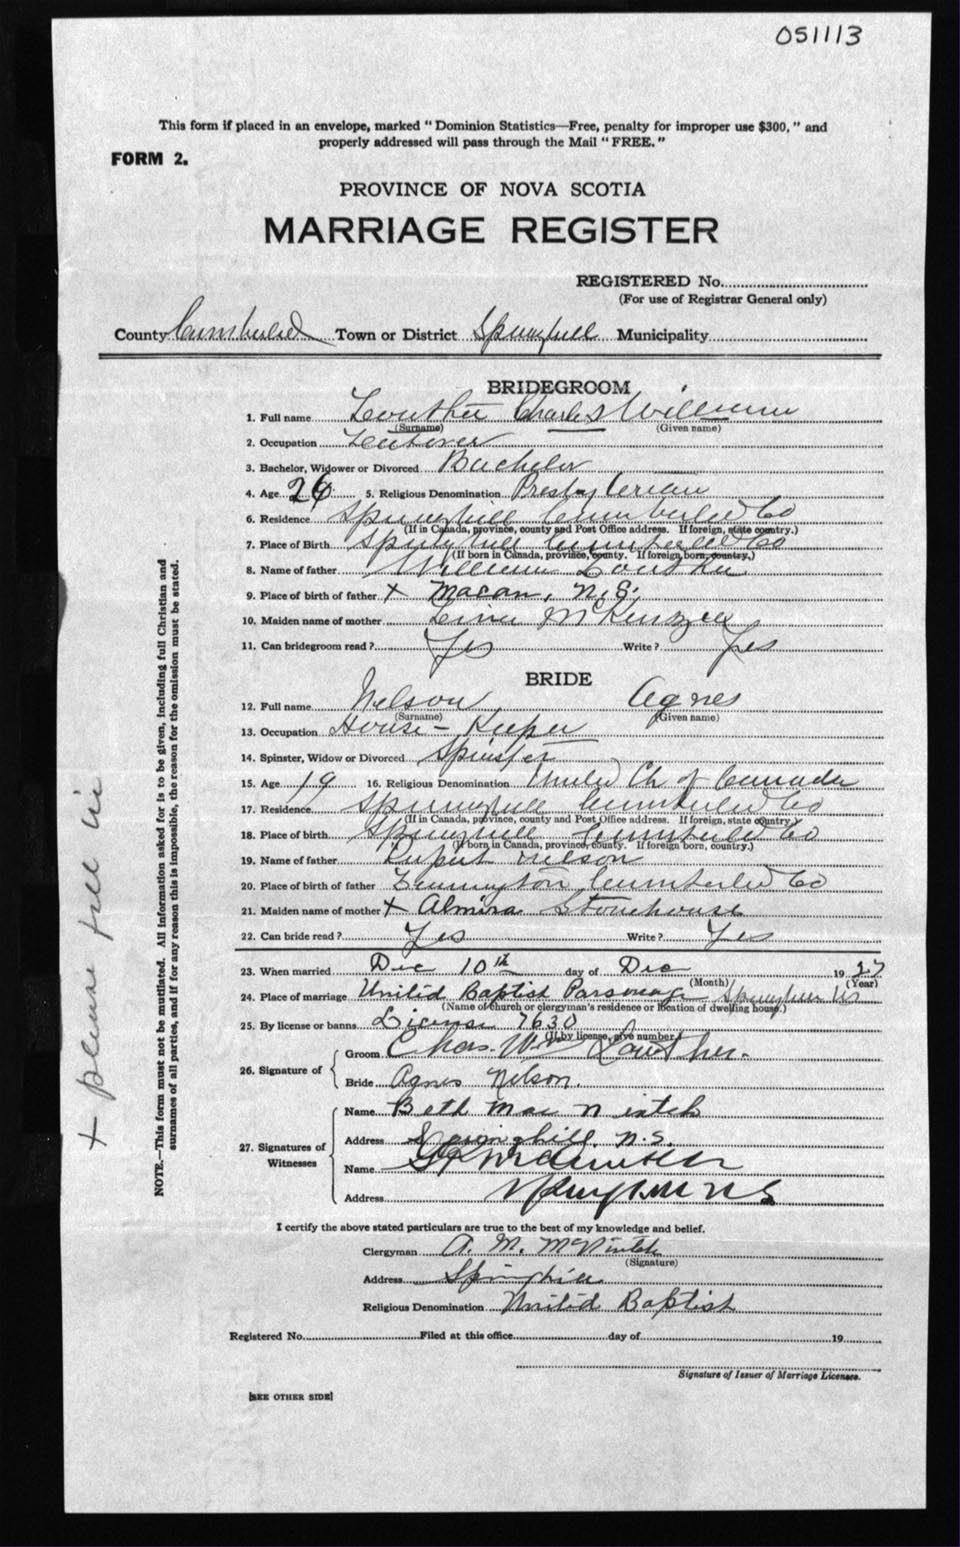 051113
This form if placed in an envelope, marked "Dominion Statistics—Free, penalty for improper use $300," and
properly addressed will pass through the Mail "FREE."
FORM 2.
PROVINCE OF NOVA SCOTIA
MARRIAGE REGISTER
REGISTERED No.
(For use of Registrar General only)
County Cumberland Town or District Springhill Municipality
BRIDEGROOM
1. Full name Lowther Charles William
(Surname) (Given name)
2. Occupation
3. Bachelor, Widower or Divorced Bachelor
4. Age 26 5. Religious Denomination Presbyterian
6. Residence Springhill Cumberland Co
(If in Canada, province, county and Post Office address. If foreign, state country.)
7. Place of Birth Springhill Cumberland Co
(If born in Canada, province, county. If foreign born, country.)
8. Name of father William Lowther
9. Place of birth of father x Macan, N.S.
10. Maiden name of mother McKenzie
11. Can bridegroom read? Yes Write? Yes
BRIDE
12. Full name Nelson Agnes
(Surname) (Given name)
13. Occupation House-Keeper
14. Spinster, Widow or Divorced Spinster
15. Age 19 16. Religious Denomination United Ch of Canada
17. Residence Springhill Cumberland Co
(If in Canada, province, county and Post Office address. If foreign, state country.)
18. Place of birth Springhill Cumberland Co
(If born in Canada, province, county. If foreign born, country.)
19. Name of father Rupert Nelson
20. Place of birth of father Cumberland Co
21. Maiden name of mother x Almira Stonehouse
22. Can bride read? Yes Write? Yes
23. When married Dec 10th day of Dec 1927
(Month) (Year)
24. Place of marriage United Baptist Parsonage Springhill NS
(Name of church or clergyman's residence or location of dwelling house.)
25. By license or banns License 7630
(If by license, give number.)
26. Signature of
Groom Chas. Wm Lowther.
Bride Agnes Nelson.
27. Signatures of Witnesses
Name Beth MacNintch
Address Springhill, N.S.
Name
Address Springhill N S
I certify the above stated particulars are true to the best of my knowledge and belief.
Clergyman A. M. McNintch
(Signature)
Address Springhill
Religious Denomination United Baptist
Registered No. Filed at this office day of 19
Signature of Issuer of Marriage Licenses.
[SEE OTHER SIDE]
NOTE.—This form must not be mutilated. All information asked for is to be given, including full Christian and
surnames of all parties, and if for any reason this is impossible, the reason for the omission must be stated.
+ please fill in